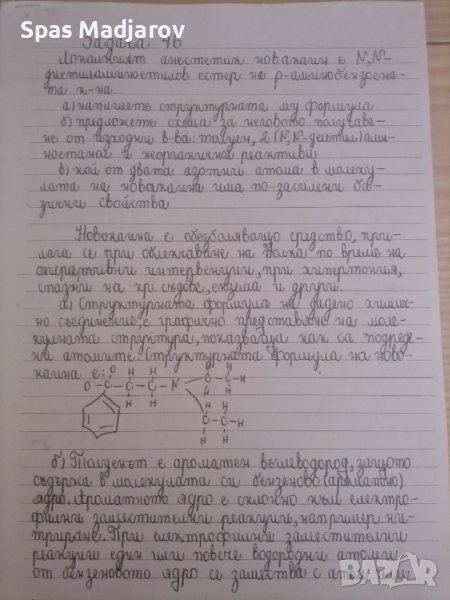 Spas Madjarov
Задача 46
Локалният анестетик новакаин е N,N-
диетиламиноетилов естер на p-аминобензоена-
та к-на.
а) напишете структурната му формула
б) предложете схема за неговото получава-
не от изходни в-ва: толуен, 2(N,N-диетил)ами-
ноетанол и неорганични реактиви
в) кой от двата азотни атома в молеку-
лата на новакаина има по-засилени ба-
зични свойства
Новокаина е обезболяващо средство, при-
лага се при облекчаване на болка по време на
оперативни интервенции, при хипертония,
спазми на кр. съдове, екзема и други.
а) Структурната формула на дадено химич-
но съединение е графично представяне на моле-
кулната структура, показваща как са подреде-
ни атомите. Структурната формула на ново-
каина е:
б) Толуенът е ароматен въглеводород, защото
съдържа в молекулата си бензеново (ароматно)
ядро. Ароматното ядро е склонно към електро-
филни заместителни реакции, например ни-
триране. При електрофилни заместителни
реакции един или повече водородни атоми
от бензеновото ядро се замества с атом или
BAZAR